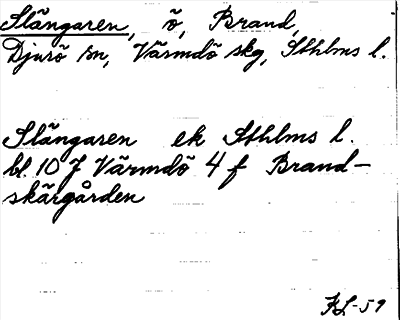 Slängaren, ö, Brand,
Djurö sn, Värmdö skg, Sthlms l.
Slängaren ek Sthlms l.
bl. 10 J Värmdö 4 f Brand-
skärgården
KL-59